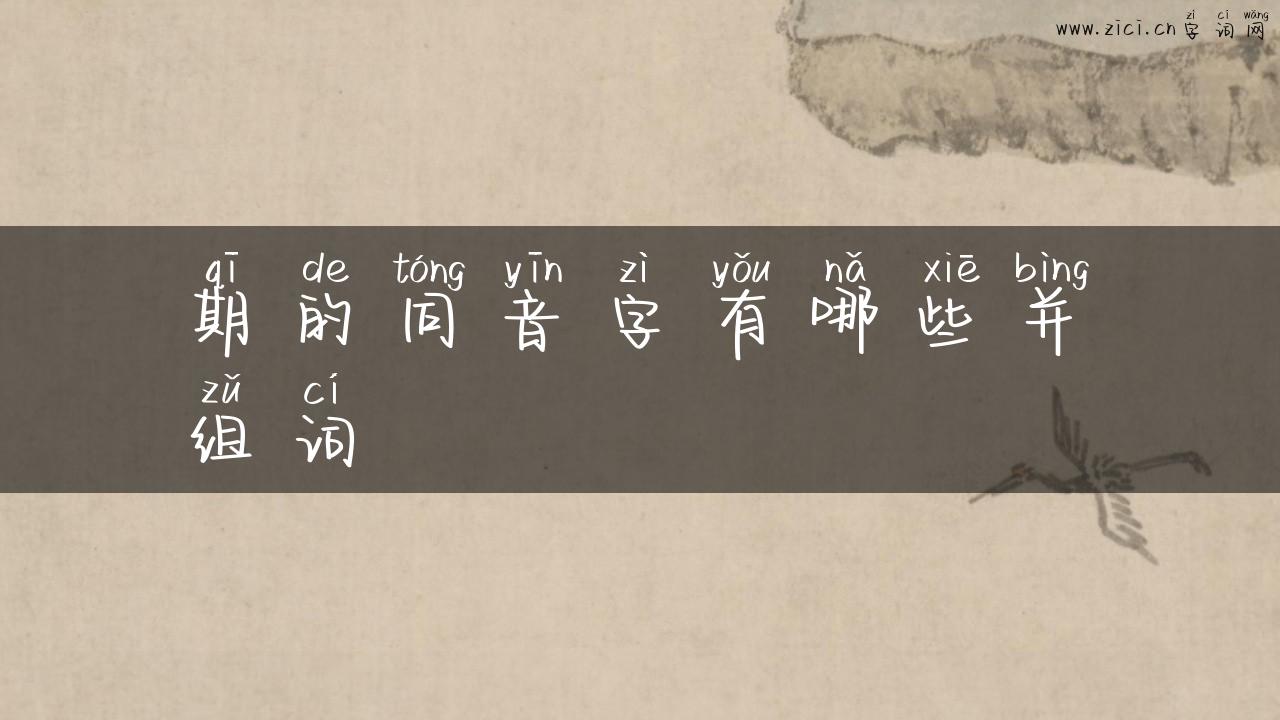 zì cí wǎng
www.zici.cn 字词网
qī de tóng yīn zì yǒu nǎ xiē bìng
期的同音字有哪些并
zǔ cí
组词